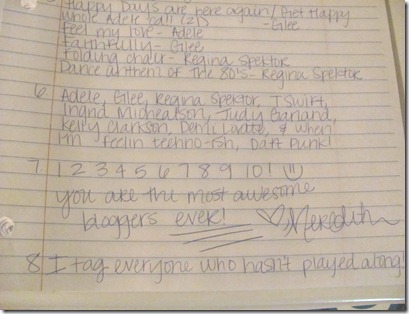 Happy Days are here again/Get Happy
Whole Adele ball (21) -Glee
Feel my love - Adele
Faithfully - Glee
Folding chair - Regina Spektor
Dance anthem of the 80's - Regina Spektor
6. Adele, Glee, Regina Spektor, T Swift,
Ingrid Michealson, Judy Garland,
Kelly Clarkson, Demi Lovato, & when
I'm feelin techno-ish, Daft Punk!
7. 1 2 3 4 5 6 7 8 9 10!
you are the most awesome
bloggers ever! Meredith
8 I tag everyone who hasn't played along!